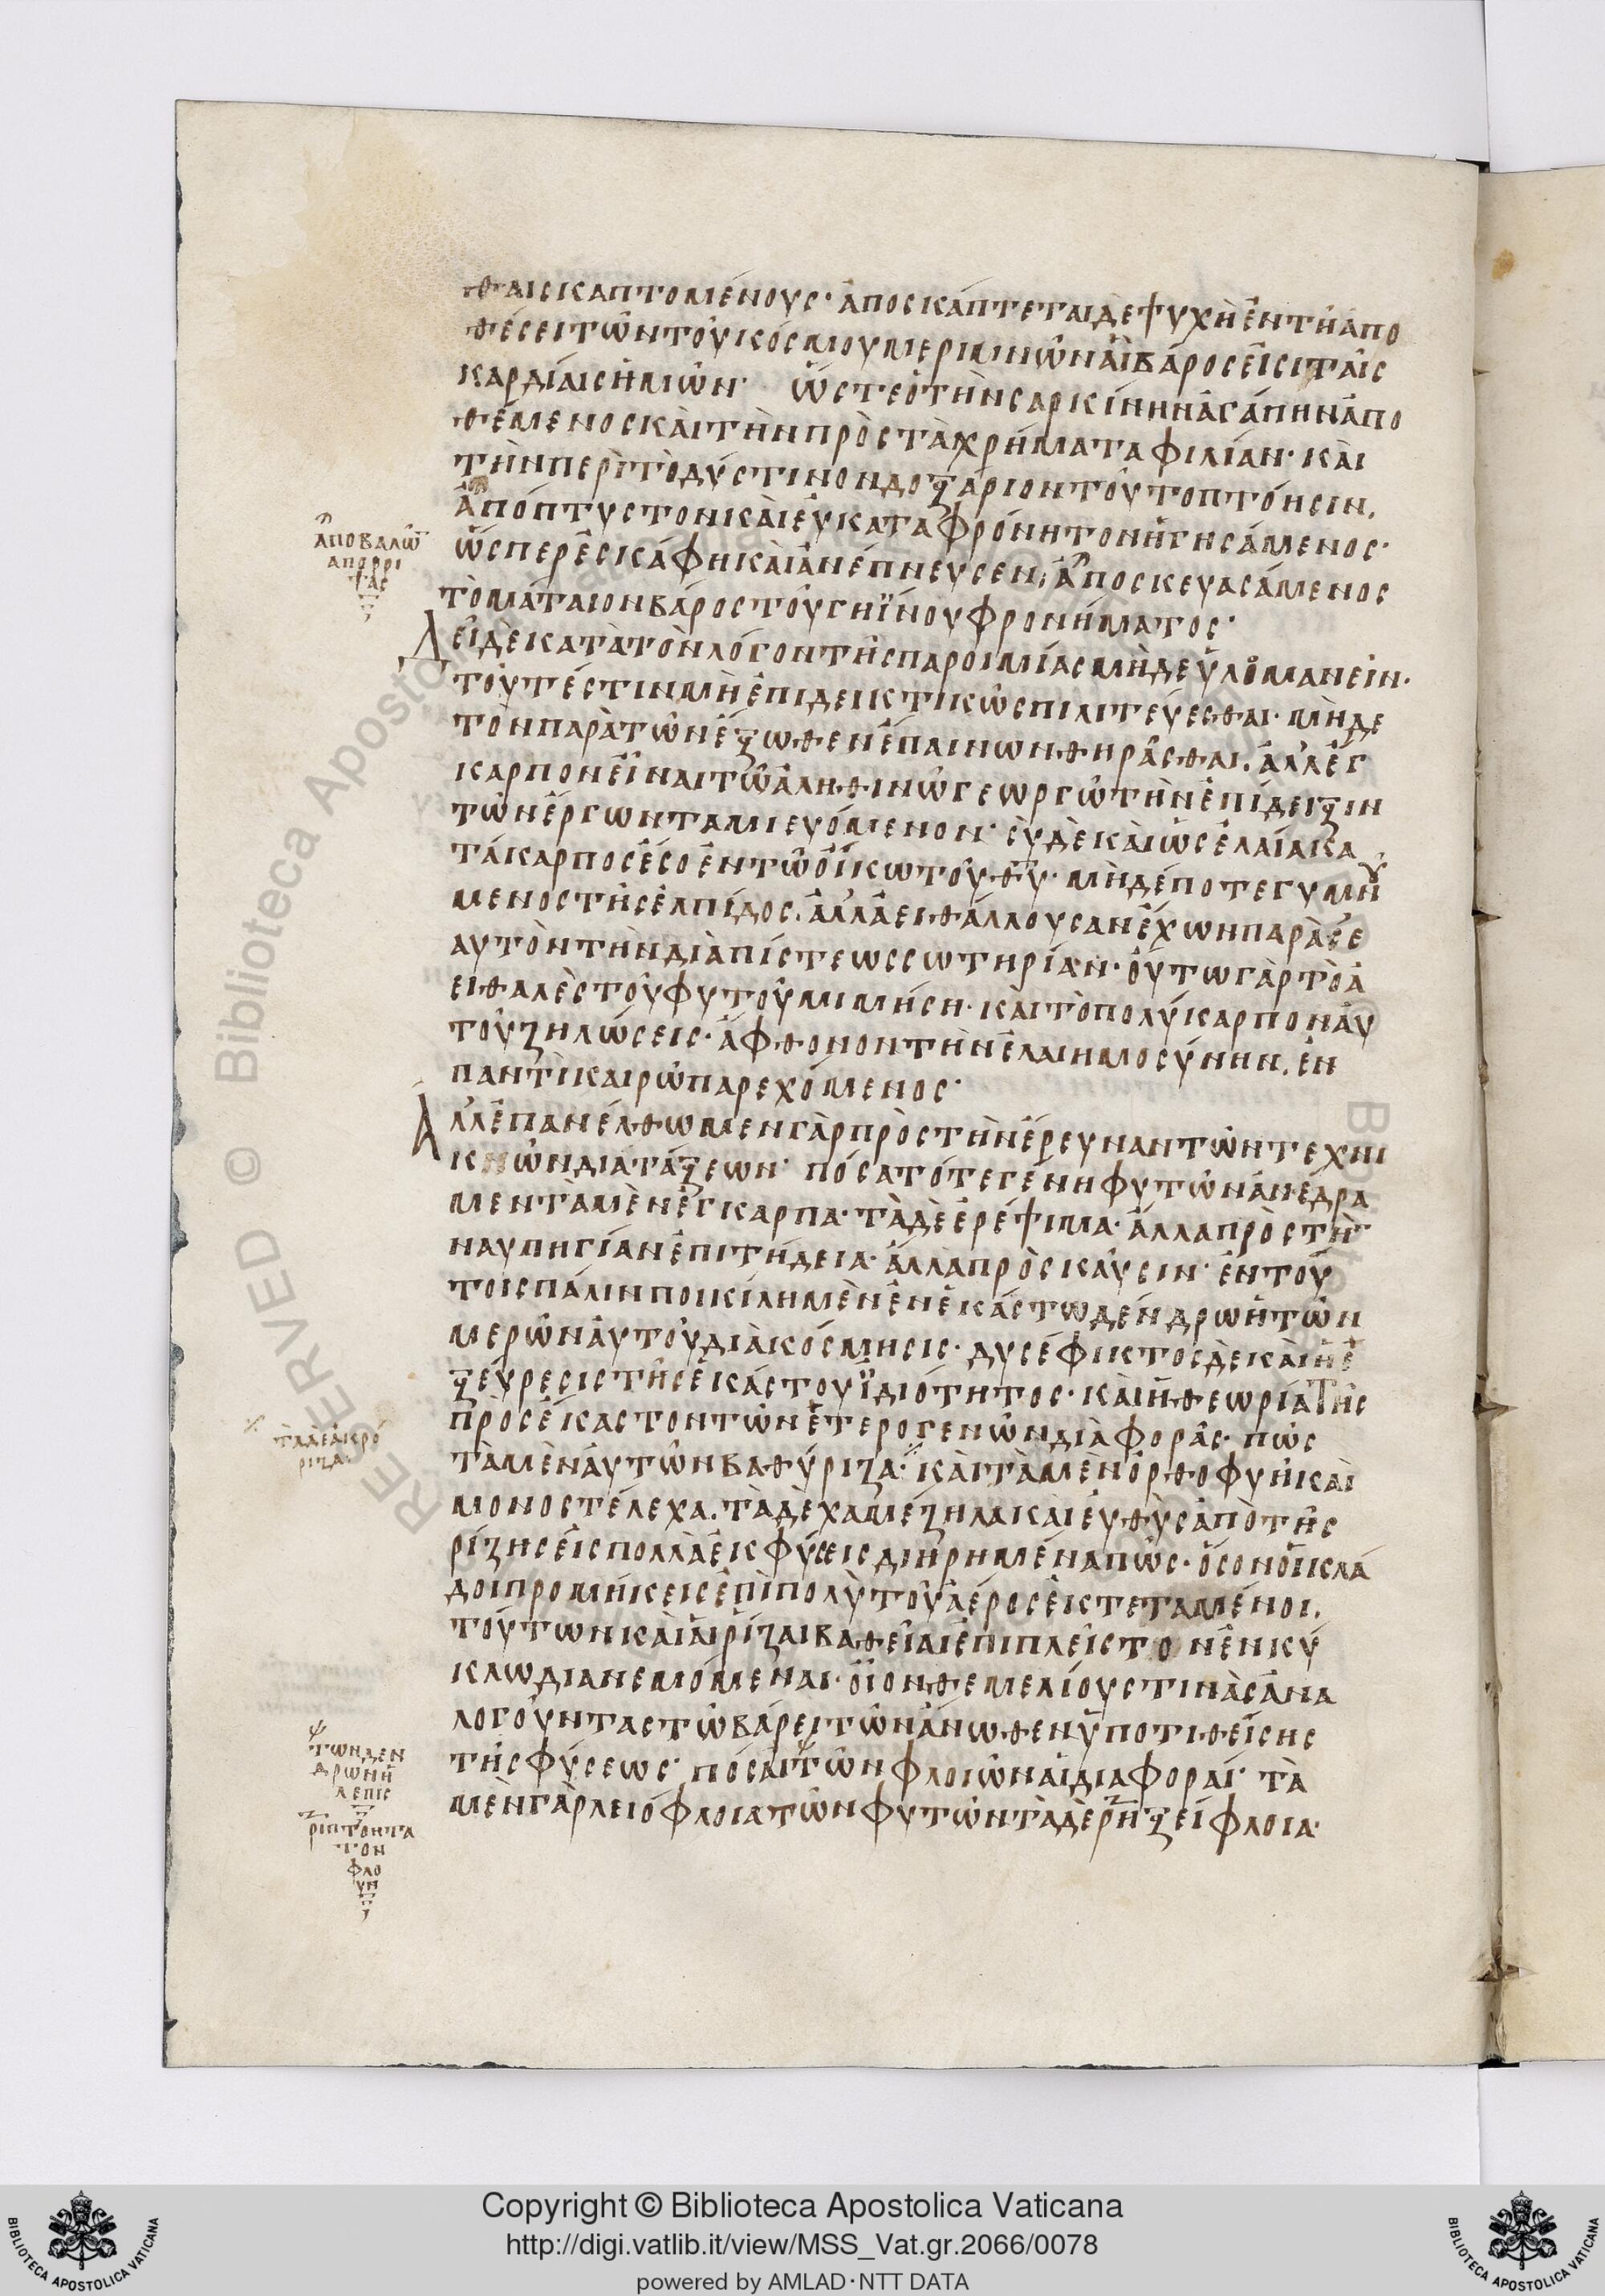 θαι σκαπτομένους· ἀποσκάπτεται δὲ ψυχὴ ἐν τῇ ἀπο
θέσει τῶν τοῦ κόσμου μεριμνῶν αἳ βάρος εἰσὶ ταῖς
καρδίαις ἡμῶν· ὥστε ὁ τὴν σαρκίνην ἀγάπην ἀπο
θέμενος καὶ τὴν πρὸς τὰ χρήματα φιλίαν· καὶ
τὴν περὶ τὸ δύστινον δοξάριον τοῦτο πτόησιν,
ἀπόπτυστον καὶ εὐκαταφρόνητον ἡγησάμενος·
ὥσπερ ἐσκάφη καὶ ἀνέπνευσεν, ἀποσκευασάμενος
τὸ μάταιον βάρος τοῦ γηΐνου φρονήματος·
Δεῖ δὲ κατὰ τὸν λόγον τῆς παροιμίας μὴδε ὑλομανεῖν·
τουτέστιν μὴ ἐπιδεικτικῶς πιλιτεύεσθαι· μὴδε
τὸν παρὰ τῶν ἔξωθεν ἔπαινων θηρᾶσθαι. ἀλλ' ἔγ
καρπον εἶναι τῷ ἀληθινῷ γεωργῷ τὴν ἐπίδειξιν
τῶν ἔργων ταμιευόμενον· σὺ δὲ καὶ ὡς ἐλαία κα
τάκαρπος ἔσο ἐν τῷ οἴκω τοῦ θυ· μὴδέποτε γυμνού
μενος τῆς ἐλπίδος. ἀλλ' ἀειθάλλουσαν ἔχων παρὰ σε
αυτὸν τὴν διὰ πίστεως σωτηρίαν· οὕτω γὰρ τὸ ἀ
ειθαλὲς τοῦ φυτοῦ μιμήση· καὶ τὸ πολύκαρπον αὐ
τοῦ ζηλώσεις· ἄφθονον τὴν ἐλαιημοσύνην. ἐν
παντὶ καιρῷ παρεχόμενος·
Ἀλλ' ἐπανέλθωμεν γὰρ πρὸς τὴν ἔρευναν τῶν τεχνι
κῶν διατάξεων· πόσα τότε γένη φυτῶν ἀνέδρα
μεν τὰ μὲν ἔγκαρπα· τὰ δὲ ἐρέψιμα· ἄλλα πρὸς τὴν
ναυπηγίαν ἐπιτήδεια· ἄλλα πρὸς καῦσιν· ἐν τού
τοις πάλιν ποικίλη μὲν ἐν ἑκάστω δένδρω ἡ τῶν
μερῶν αὐτοῦ διὰκόσμησις· δυσέφικτος δὲ καὶ ἡ ἐ
ξεύρεσις τῆς ἑκάστου ἰδιότητος· καὶ ἡ θεωρία τῆς
πρὸς ἕκαστον τῶν ἑτερογενῶν διὰφορᾶς· πῶς
τὰ μὲν αὐτῶν βαθύριζα· καὶ τὰ μὲν ὀρθοφυῆ καὶ
μονοστέλεχα. τὰ δὲ χαμέζηλα καὶ εὐθὺς ἀπὸ τῆς
ρίζης εἰς πολλὰ ἐκφύσεις διηρημένα πῶς· ὅσον οἱ κλά
δοι προμήκεις ἐπὶ πολὺ τοῦ ἀέρος ἐκτεταμένοι,
τούτων καὶ αἱ ρίζαι βαθεῖαι ἐπιπλεῖστον ἐν κύ
κλω διανεμόμεναι· οἷον θεμελίους τινὰς ἀνα
λογοῦντας τῷ βάρει τῶν ἄνωθεν ὑποτιθείσης
τῆς φύσεως· πόσαι τῶν φλοιῶν αἱ διαφοραί· τὰ
μὲν γὰρ λειόφλοια τῶν φυτῶν τὰ δὲ ρηξείφλοια·
ἀποβαλών
απορρί
ψας
τὰ δὲ ἀκρό
ριζα·
των δέν
δρων ἡ
λεπίς
ρίπτοντα
τὸν
φλο
υν
Copyright © Biblioteca Apostolica Vaticana
http://digi.vatlib.it/view/MSS_Vat.gr.2066/0078
powered by AMLAD·NTT DATA
BIBLIOTECA APOSTOLICA VATICANA
BIBLIOTECA APOSTOLICA VATICANA